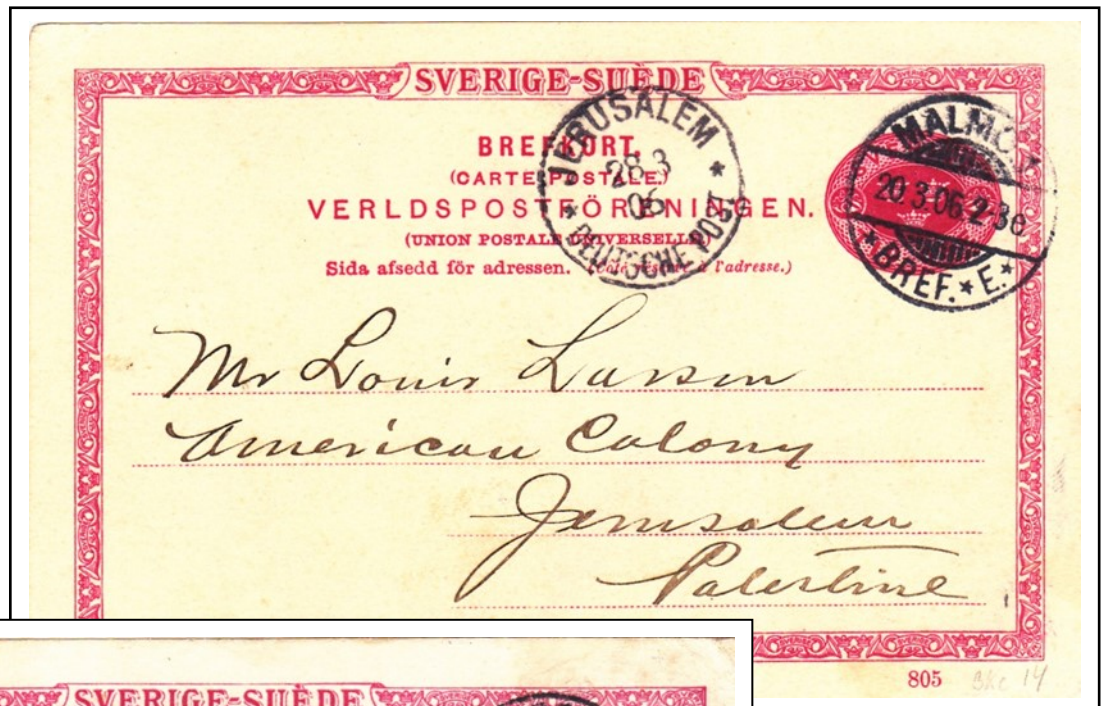 SVERIGE-SUÈDE
BREFKORT.
(CARTE POSTALE.)
VERLDSPOSTFÖRENINGEN.
(UNION POSTALE UNIVERSELLE)
Sida afsedd för adressen. (Côté réservé à l'adresse.)
JERUSALEM
28 3
06
DEUTSCHE POST
MALMÖ
20.3.06 2-3e
BREF. E.
Mr Louis Larson
American Colony
Jerusalem
Palestine
805
14
SVERIGE-SUÈDE